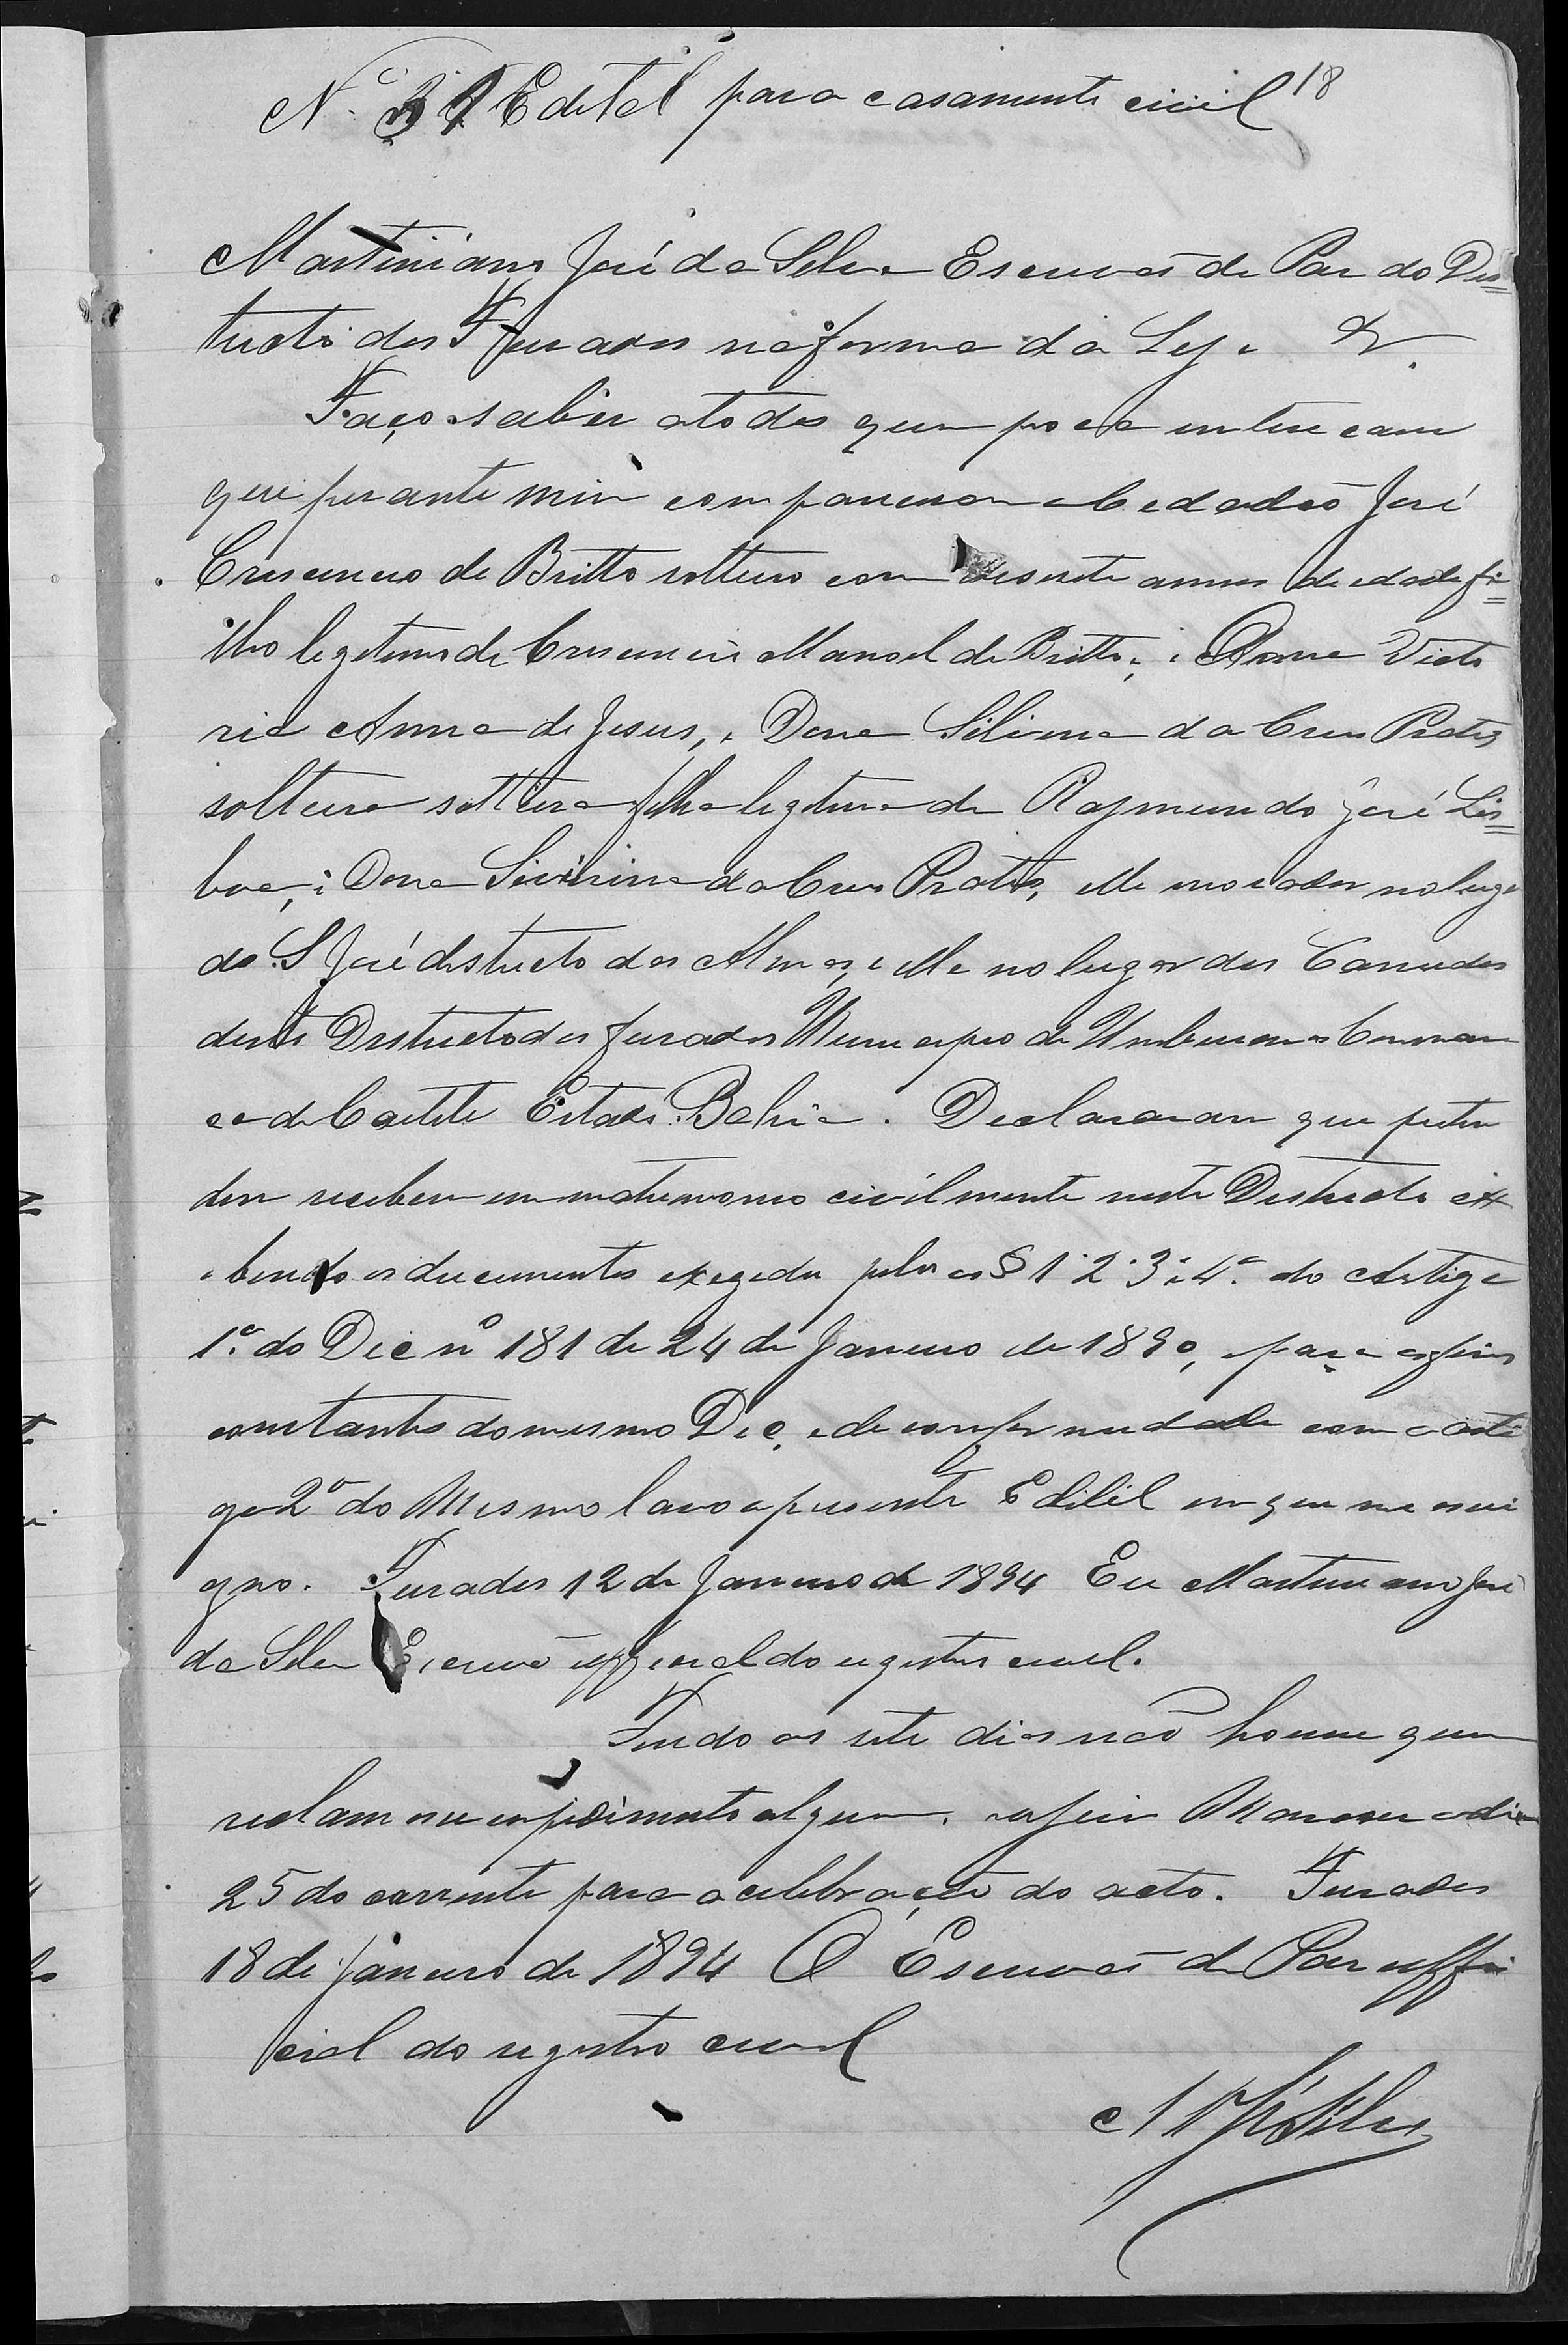 Nº 31 Edital para casamento civil 18
Martiniano José da Silva Escrivaõ de Paz do Dis=
tricto dos Furados na forma da Ley &.
Faço saber a todos quem possa enteressar
que perante mim compareceram o Cedadaõ José
Crescencio de Britto solteiro com desesete annos de edade fi=
lho legetimo de Crescencio Manoel de Britto, e Dona Victo
ria Anna de Jesus, e Dona Silvina da Cruz Prates
solteira solteira filha legetima de Raymundo José Lis=
boa, e Dona Siverina da Cruz Prates, elle morador no lugar
do S José districto das Almas, e ella no lugar dos Canudos
deste Districto dos Furados Municepio de Umburanas Comar
ca de Caetité Estado Bahia. Declararam que preten
dem receberem em matremonio civilmente neste Destricto ex
ebendo os documentos exegedos pelos os § 1º 2º 3º e 4º do Artigo
1º do Dec nº 181 de 24 de Janeiro de 1890, e para os fins
constantes do mesmo Dec, e de conformedade com o arte
go 2º do Mesmo lavro o presente Edital em que me assi
gno. Furados 12 de Janeiro de 1894 Eu Martiniano José
da Silva Escrivaõ official do registro civil.
Findo os sete dias naõ houve quem
reclamasse empedimento algum, Marcou o dia
25 do corrente para a celebração do acto. Furados
18 de Janeiro de 1894 O Escrivaõ de Paz offi
cial do registro civil
M J Silva